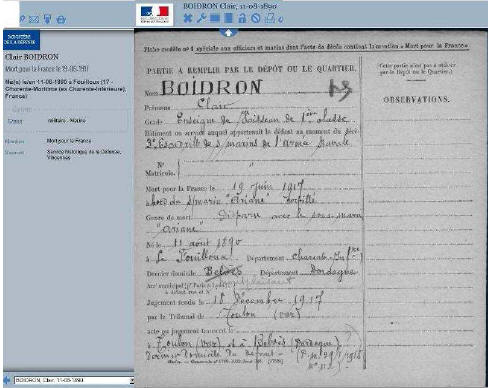 BOIDRON Clair, 11-08-1890
Clair BOIDRON
Mort pour la France le 19-06-1917
Né(e) le/en 11-08-1890 à Fouilloux (17 - Charente-Maritime (ex Charente-Inférieure), France)
militaire - Marine
Mention Mort pour la France
Service historique de la Défense, Vincennes
BOIDRON, Clair, 11-08-1890
Fiche modèle n° 4 spéciale aux officiers et marins dont l'acte de décès contient la mention « Mort pour la France »
PARTIE A REMPLIR PAR LE DÉPÔT OU LE QUARTIER.
Nom BOIDRON
Prénoms Clair
Grade Enseigne de Vaisseau de 1ère classe
Bâtiment ou service auquel appartenait le défunt au moment du décès
3e Escadrille de s/marins de l'armée Navale
N°
Matricule.
Mort pour la France le 19 Juin 1917
à bord du s/marin "Ariane" torpillé
Genre de mort Disparu avec le sous-marin
"Ariane"
Né le 11 août 1890
à Le Fouilloux Département Charente-Infre
Dernier domicile Belvès Département Dordogne
Jugement rendu le 18 Décembre 1917
par le Tribunal de Toulon (Var)
acte ou jugement transcrit le
à Toulon (Var) et à Belvès (Dordogne)
dernier domicile du défunt
Cette partie n'est pas à remplir par le Dépôt ou le Quartier.
OBSERVATIONS.